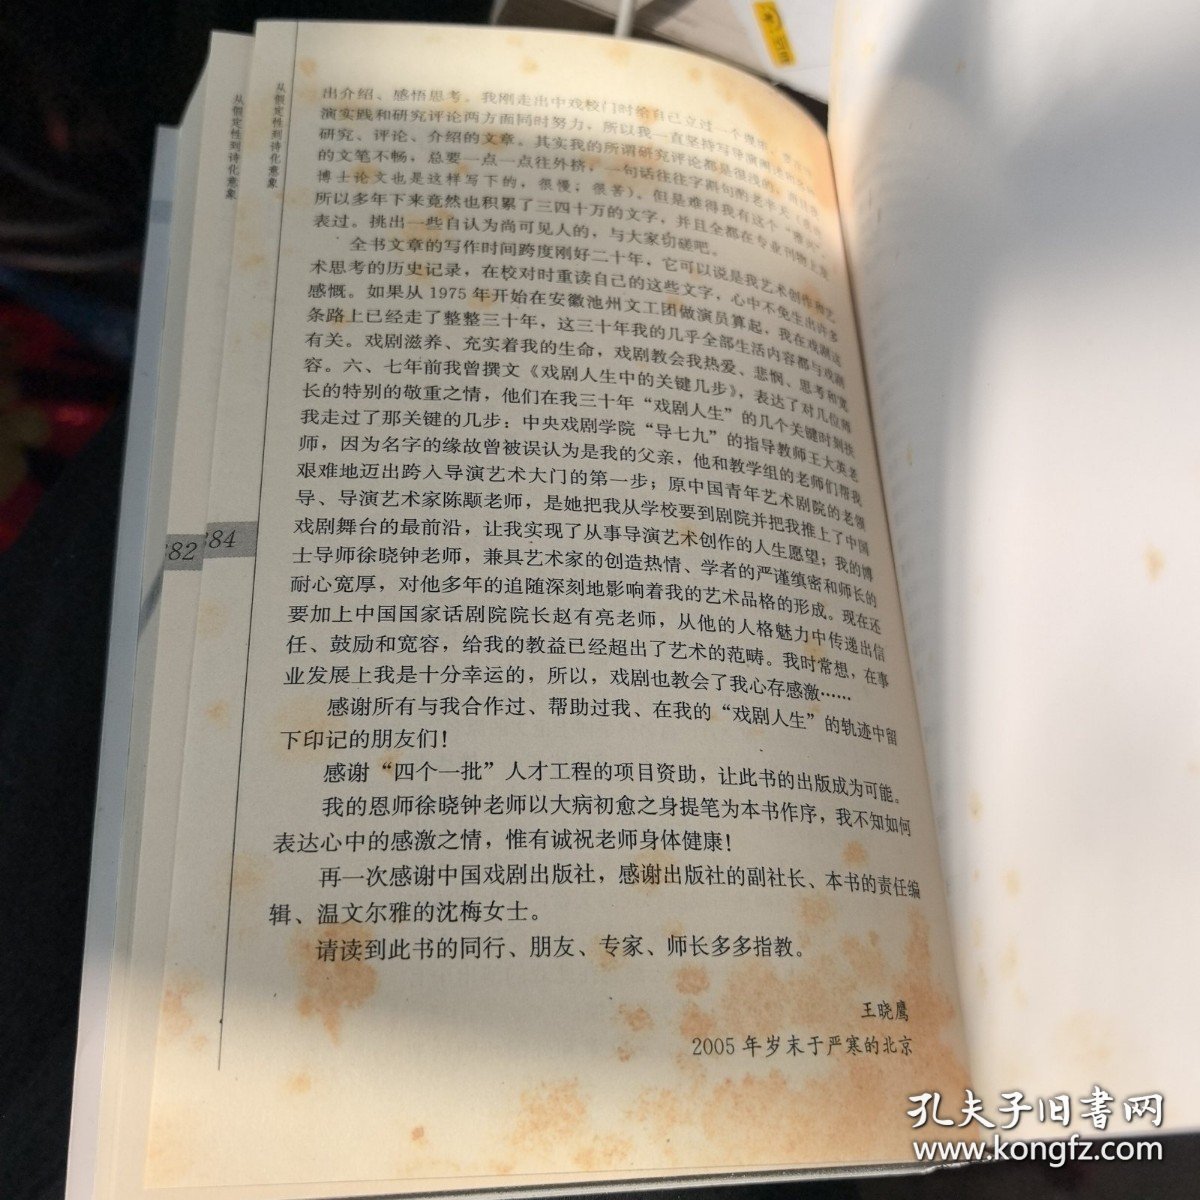 从假定性到诗化意象
从假定性到诗化意象
出介绍、感悟思考。我刚走出中戏校门时给自己立过一个
演实践和研究评论两方面同时努力，所以我一直坚持写导演阐述
研究、评论、介绍的文章。其实我的所谓研究评论都是很浅的，而且我
的文笔不畅，总要一点一点往外挤，一句话往往字斟句酌老半天
博士论文也是这样写下的，很慢；很苦）。但是难得我有这个
所以多年下来竟然也积累了三四十万的文字，并且全都在专业刊物上发
表过。挑出一些自认为尚可见人的，与大家切磋吧。
全书文章的写作时间跨度刚好二十年，它可以说是我艺术创作和艺
术思考的历史记录，在校对时重读自己的这些文字，心中不免生出许多
感慨。如果从1975年开始在安徽池州文工团做演员算起，我在戏剧这
条路上已经走了整整三十年，这三十年我的几乎全部生活内容都与戏剧
有关。戏剧滋养、充实着我的生命，戏剧教会我热爱、悲悯、思考和宽
容。六、七年前我曾撰文《戏剧人生中的关键几步》，表达了对几位师
长的特别的敬重之情，他们在我三十年“戏剧人生”的几个关键时刻扶
我走过了那关键的几步：中央戏剧学院“导七九”的指导教师王大英老
师，因为名字的缘故曾被误认为是我的父亲，他和教学组的老师们帮我
艰难地迈出跨入导演艺术大门的第一步；原中国青年艺术剧院的老领
导、导演艺术家陈颙老师，是她把我从学校要到剧院并把我推上了中国
戏剧舞台的最前沿，让我实现了从事导演艺术创作的人生愿望；我的博
士导师徐晓钟老师，兼具艺术家的创造热情、学者的严谨缜密和师长的
耐心宽厚，对他多年的追随深刻地影响着我的艺术品格的形成。现在还
要加上中国国家话剧院院长赵有亮老师，从他的人格魅力中传递出信
任、鼓励和宽容，给我的教益已经超出了艺术的范畴。我时常想，在事
业发展上我是十分幸运的，所以，戏剧也教会了我心存感激……
感谢所有与我合作过、帮助过我、在我的“戏剧人生”的轨迹中留
下印记的朋友们！
感谢“四个一批”人才工程的项目资助，让此书的出版成为可能。
我的恩师徐晓钟老师以大病初愈之身提笔为本书作序，我不知如何
表达心中的感激之情，惟有诚祝老师身体健康！
再一次感谢中国戏剧出版社，感谢出版社的副社长、本书的责任编
辑、温文尔雅的沈梅女士。
请读到此书的同行、朋友、专家、师长多多指教。
王晓鹰
2005年岁末于严寒的北京
82
84
孔夫子旧书网
www.kongfz.com